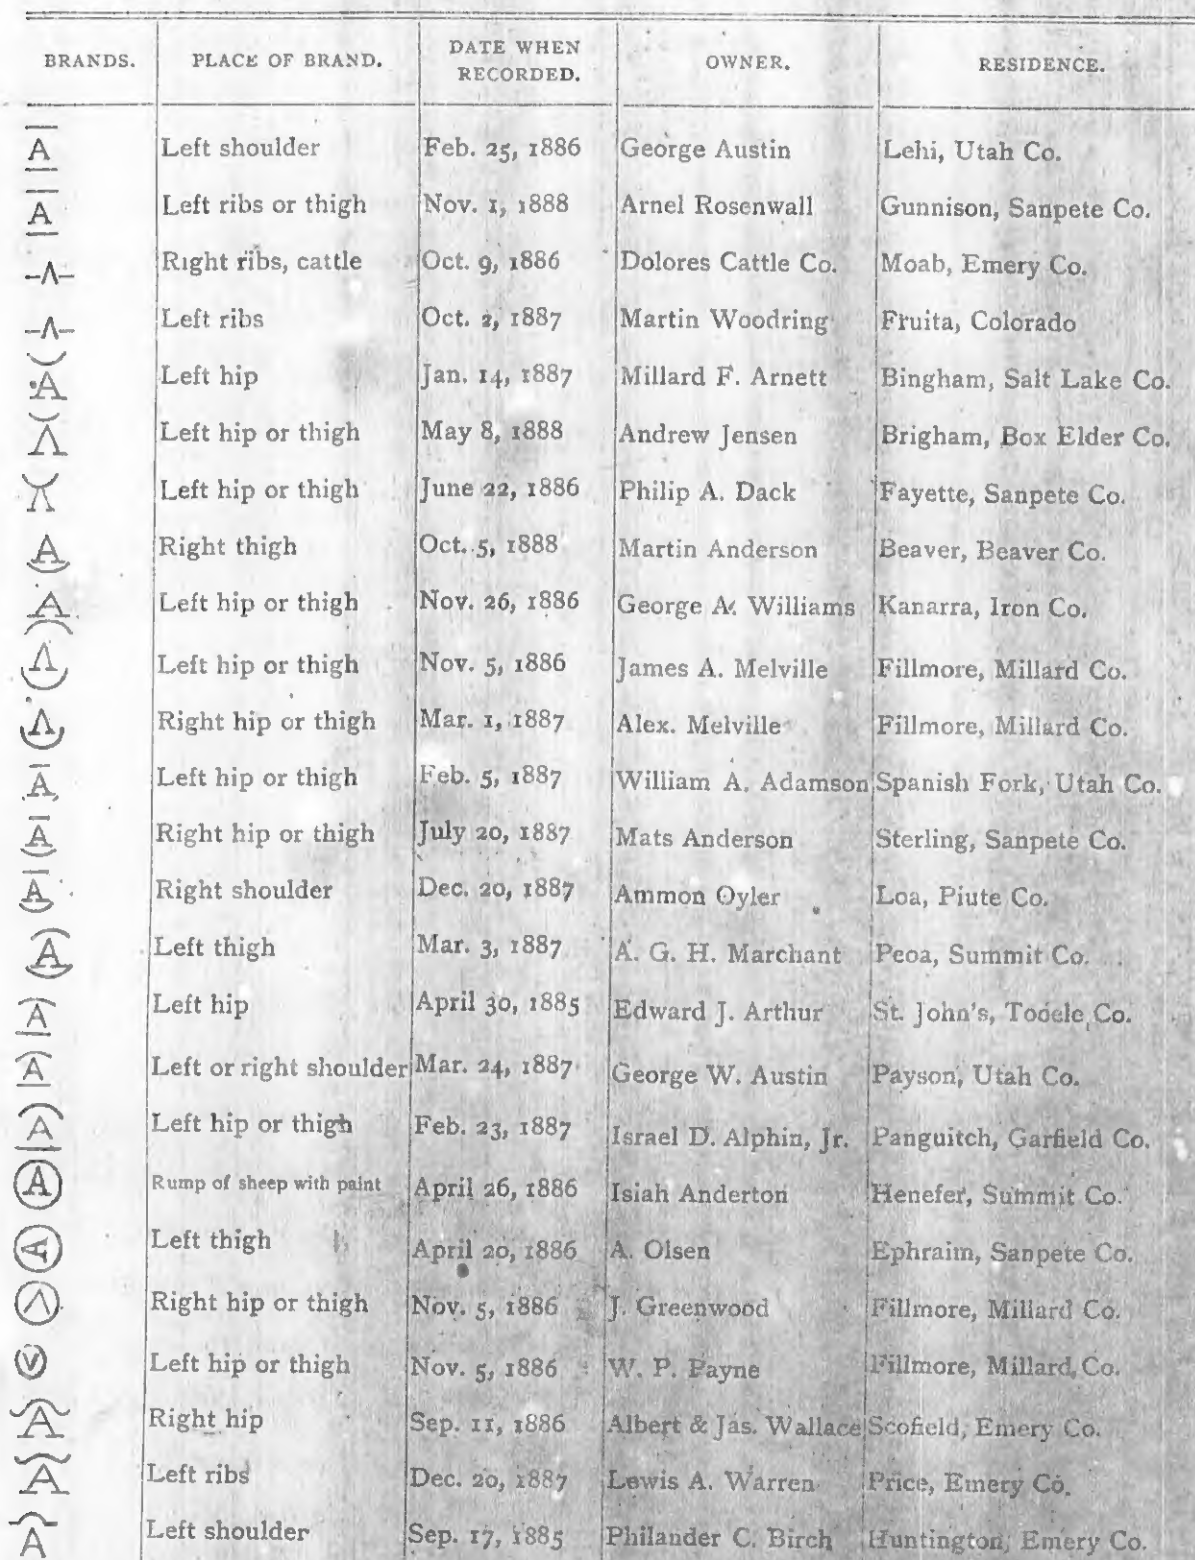 BRANDS. PLACE OF BRAND. DATE WHEN RECORDED. OWNER. RESIDENCE.
A Left shoulder Feb. 25, 1886 George Austin Lehi, Utah Co.
A Left ribs or thigh Nov. 1, 1888 Arnel Rosenwall Gunnison, Sanpete Co.
-Λ- Right ribs, cattle Oct. 9, 1886 Dolores Cattle Co. Moab, Emery Co.
-Λ- Left ribs Oct. 2, 1887 Martin Woodring Fruita, Colorado
A Left hip Jan. 14, 1887 Millard F. Arnett Bingham, Salt Lake Co.
Λ Left hip or thigh May 8, 1888 Andrew Jensen Brigham, Box Elder Co.
Left hip or thigh June 22, 1886 Philip A. Dack Fayette, Sanpete Co.
A Right thigh Oct. 5, 1888 Martin Anderson Beaver, Beaver Co.
A Left hip or thigh Nov. 26, 1886 George A. Williams Kanarra, Iron Co.
Λ Left hip or thigh Nov. 5, 1886 James A. Melville Fillmore, Millard Co.
Λ Right hip or thigh Mar. 1, 1887 Alex. Melville Fillmore, Millard Co.
A Left hip or thigh Feb. 5, 1887 William A. Adamson Spanish Fork, Utah Co.
A Right hip or thigh July 20, 1887 Mats Anderson Sterling, Sanpete Co.
A Right shoulder Dec. 20, 1887 Ammon Oyler Loa, Piute Co.
A Left thigh Mar. 3, 1887 A. G. H. Marchant Peoa, Summit Co.
A Left hip April 30, 1885 Edward J. Arthur St. John's, Tooele Co.
A Left or right shoulder Mar. 24, 1887 George W. Austin Payson, Utah Co.
A Left hip or thigh Feb. 23, 1887 Israel D. Alphin, Jr. Panguitch, Garfield Co.
A Rump of sheep with paint April 26, 1886 Isiah Anderton Henefer, Summit Co.
A Left thigh April 20, 1886 A. Olsen Ephraim, Sanpete Co.
Λ Right hip or thigh Nov. 5, 1886 J. Greenwood Fillmore, Millard Co.
V Left hip or thigh Nov. 5, 1886 W. P. Payne Fillmore, Millard Co.
A Right hip Sep. 11, 1886 Albert & Jas. Wallace Scofield, Emery Co.
A Left ribs Dec. 20, 1887 Lewis A. Warren Price, Emery Co.
A Left shoulder Sep. 17, 1885 Philander C. Birch Huntington, Emery Co.